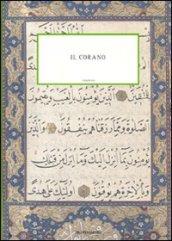 IL CORANO
لِلْمُتَّقِينَ الَّذِينَ يُؤْمِنُونَ بِالْغَيْبِ وَيُقِيمُونَ
الصَّلٰوةَ وَمِمَّا رَزَقْنَاهُمْ يُنْفِقُونَ وَالَّذِينَ
يُؤْمِنُونَ بِمَا أُنْزِلَ إِلَيْكَ وَمَا أُنْزِلَ مِنْ قَبْلِكَ
وَبِالْآخِرَةِ هُمْ يُوقِنُونَ أُولٰئِكَ عَلَىٰ هُدًى
MONDADORI